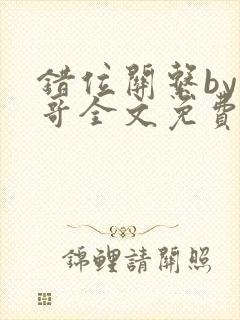 錯位關繫by
哥全文免費
錦鯉請關照